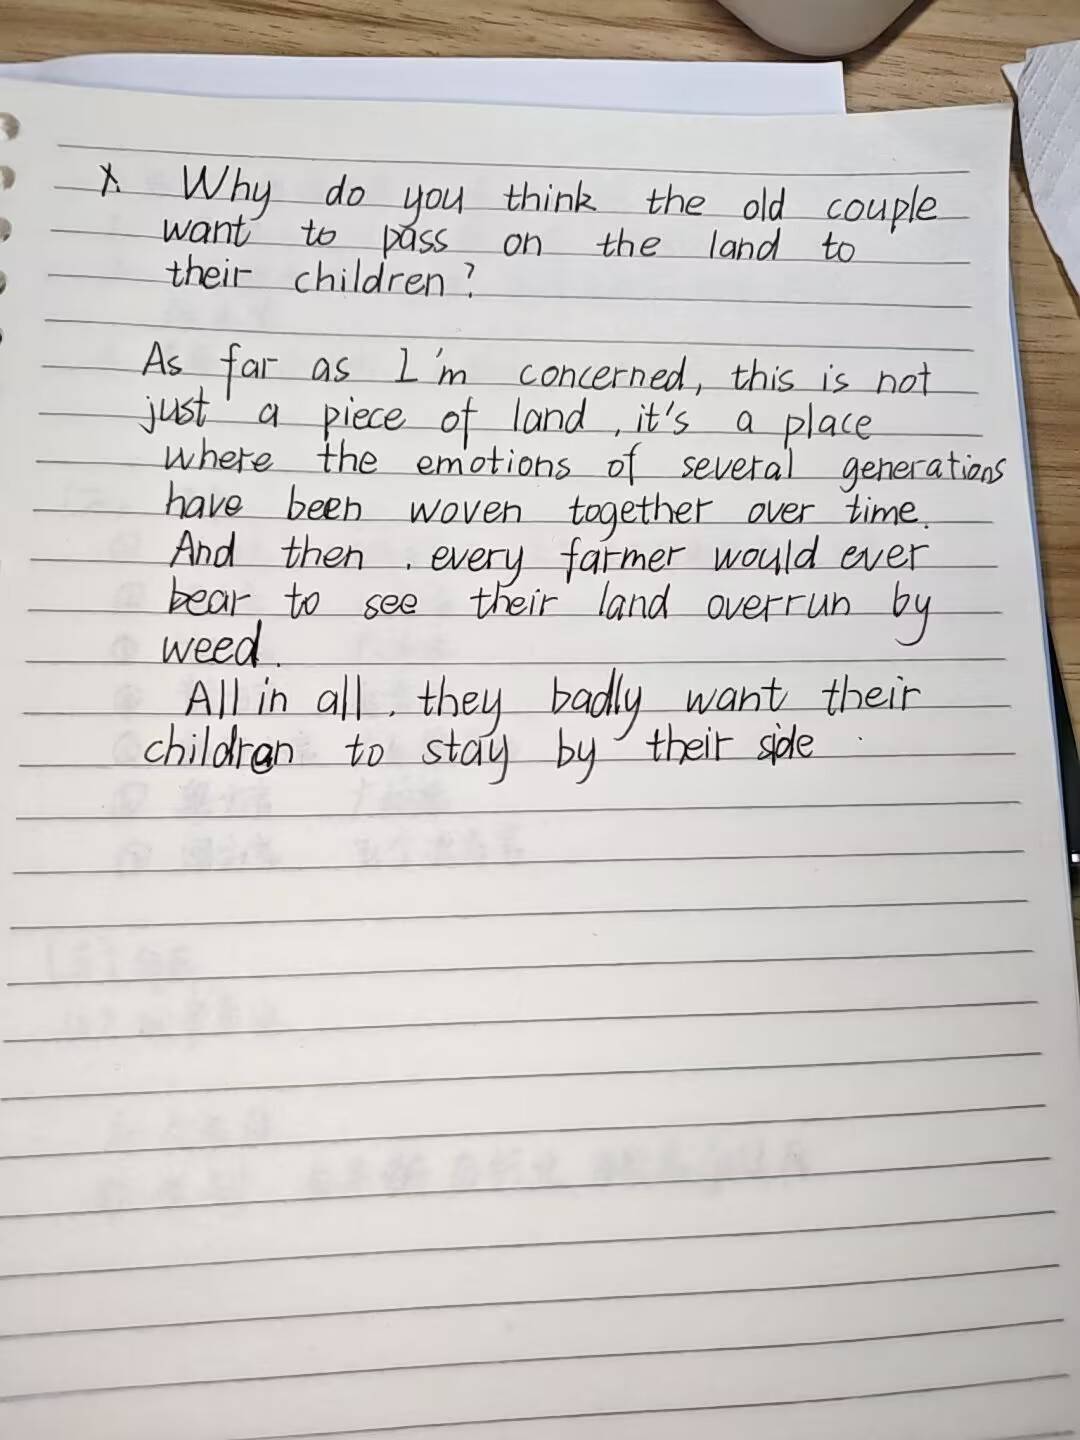 X. Why do you think the old couple
want to pass on the land to
their children?
As far as I'm concerned, this is not
just a piece of land, it's a place
where the emotions of several generations
have been woven together over time.
And then, every farmer would ever
bear to see their land overrun by
weed.
All in all, they badly want their
children to stay by their side.